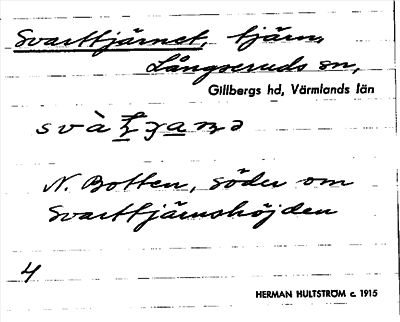 Svarttjärnet, tjärn,
Långseruds sn,
Gillbergs hd, Värmlands län
N. Botten, söder om
Svarttjärnshöjden
4
HERMAN HULTSTRÖM c. 1915